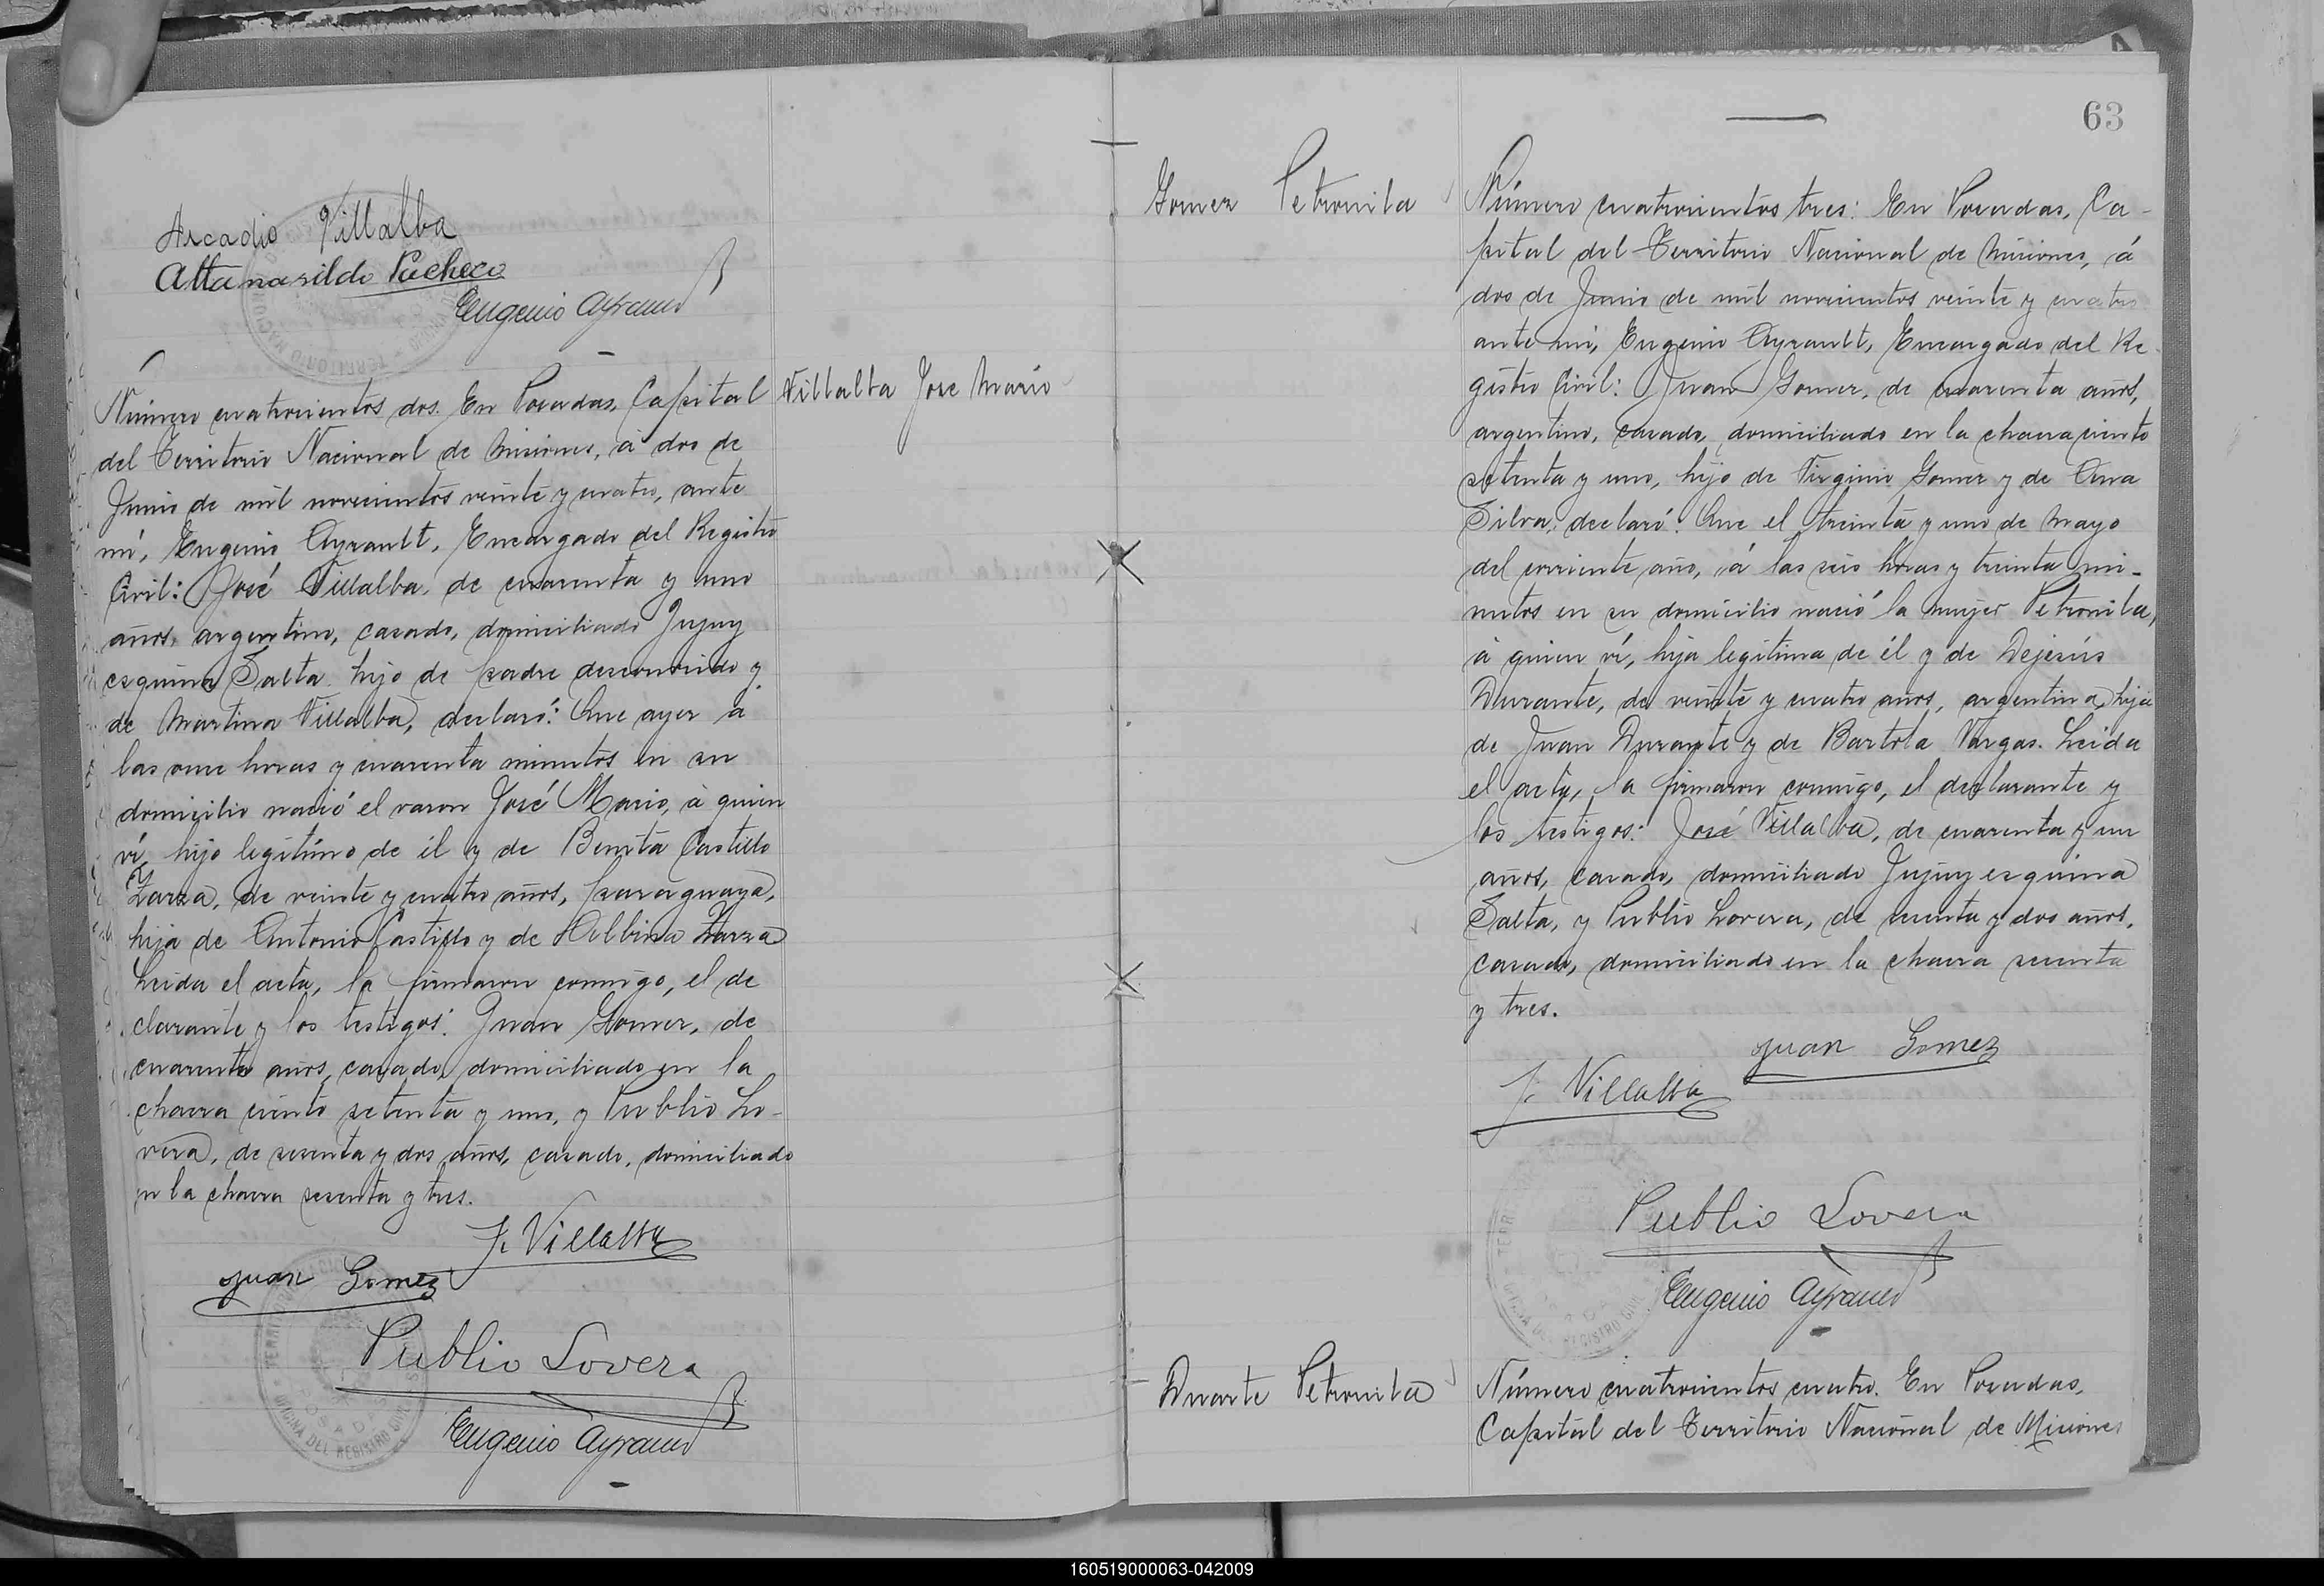 Arcadio Villalba
Attanasildo Pacheco
Eugenio Ayrault
Villalba Jose Mario
Número cuatrocientos dos. En Posadas, Capital
del Territorio Nacional de Misiones, á dos de
Junio de mil novecientos veinte y cuatro, ante
mí, Eugenio Ayrault, Encargado del Registro
Civil: José Villalba, de cuarenta y uno
años, argentino, casado, domiciliado Jujuy
esquina Salta hijo de padre desconocido y
de Martina Villalba, declaró: Que ayer á
las once horas y cuarenta minutos en su
domicilio nació el varon José Mario, á quien
ví, hijo legítimo de él y de Benita Castillo
Zarza, de veinte y cuatro años, paraguaya,
hija de Antonio Castillo y de Zarza
Leida el acta, la firmaron conmigo, el de
clarante y los testigos: Juan Gomez, de
cuarenta años, casado, domiciliado en la
chacra ciento setenta y uno, y Publio Lo-
vera, de sesenta y dos años, casado, domiciliado
en la chacra sesenta y tres.
J. Villalba
Juan Gomez
Publio Lovera
Eugenio Ayrault
63
Gomez Petronila
Número cuatrocientos tres: En Posadas, Ca-
pital del Territorio Nacional de Misiones, á
dos de Junio de mil novecientos veinte y cuatro
ante mí, Eugenio Ayrault, Encargado del Re-
gistro Civil: Juan Gomez, de cuarenta años,
argentino, casado, domiciliado en la chacra ciento
setenta y uno, hijo de Virginio Gomez y de Ana
Silva, declaró: Que el treinta y uno de Mayo
del corriente año, á las seis horas y treinta mi-
nutos en su domicilio nació la mujer Petronila,
á quien ví, hija legítima de él y de Dejesús
Durante, de veinte y cuatro años, argentina, hija
de Juan Durante y de Bartola Vargas. Leida
el acta, la firmaron conmigo, el declarante y
los testigos: José Villalba, de cuarenta y un
años, casado, domiciliado Jujuy esquina
Salta, y Publio Lovera, de sesenta y dos años,
casado, domiciliado en la chacra sesenta
y tres.
Juan Gomez
J. Villalba
Publio Lovera
Eugenio Ayrault
Duarte Petronila
Número cuatrocientos cuatro. En Posadas,
Capital del Territorio Nacional de Misiones
160519000063-042009